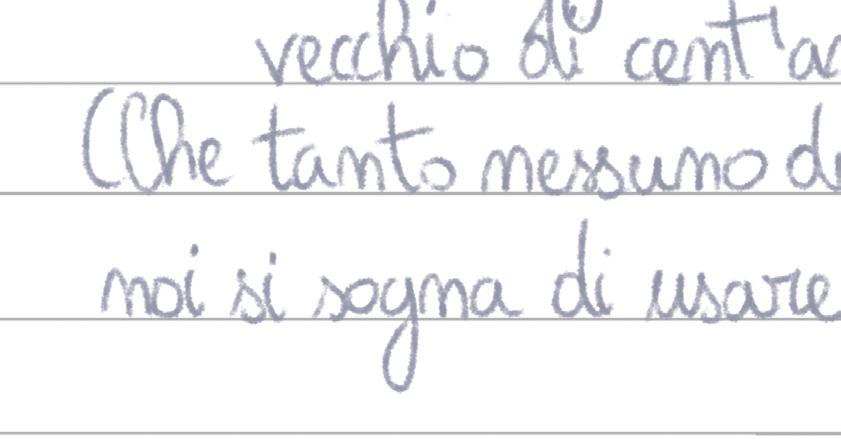 vecchio di cent'a
(Che tanto nessuno d
noi si sogna di usare